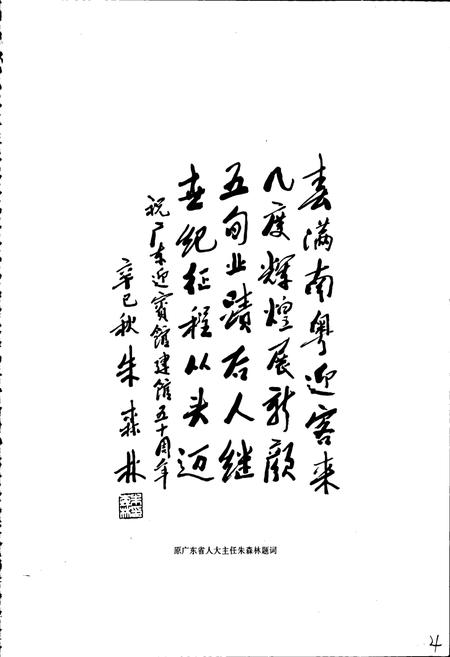 春满南粤迎客来
几度辉煌展新颜
五旬业蹟后人继
世纪征程从头迈
祝广东迎宾馆建馆五十周年
辛巳秋 朱森林
原广东省人大主任朱森林题词
4